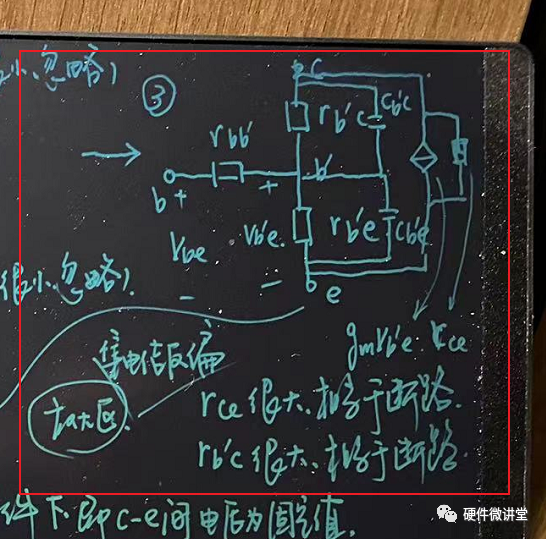 小忽略)
③
c
rb'c
Cb'c
rbb'
b
+
+
b'
Vbe
Vb'e
rb'e
Cb'e
-
-
e
很小忽略)
gmVb'e rce
集电结反偏
放大区
rce很大、相当于断路.
rb'c很大、相当于断路.
件下.即c-e间电压为固定值.
硬件微讲堂